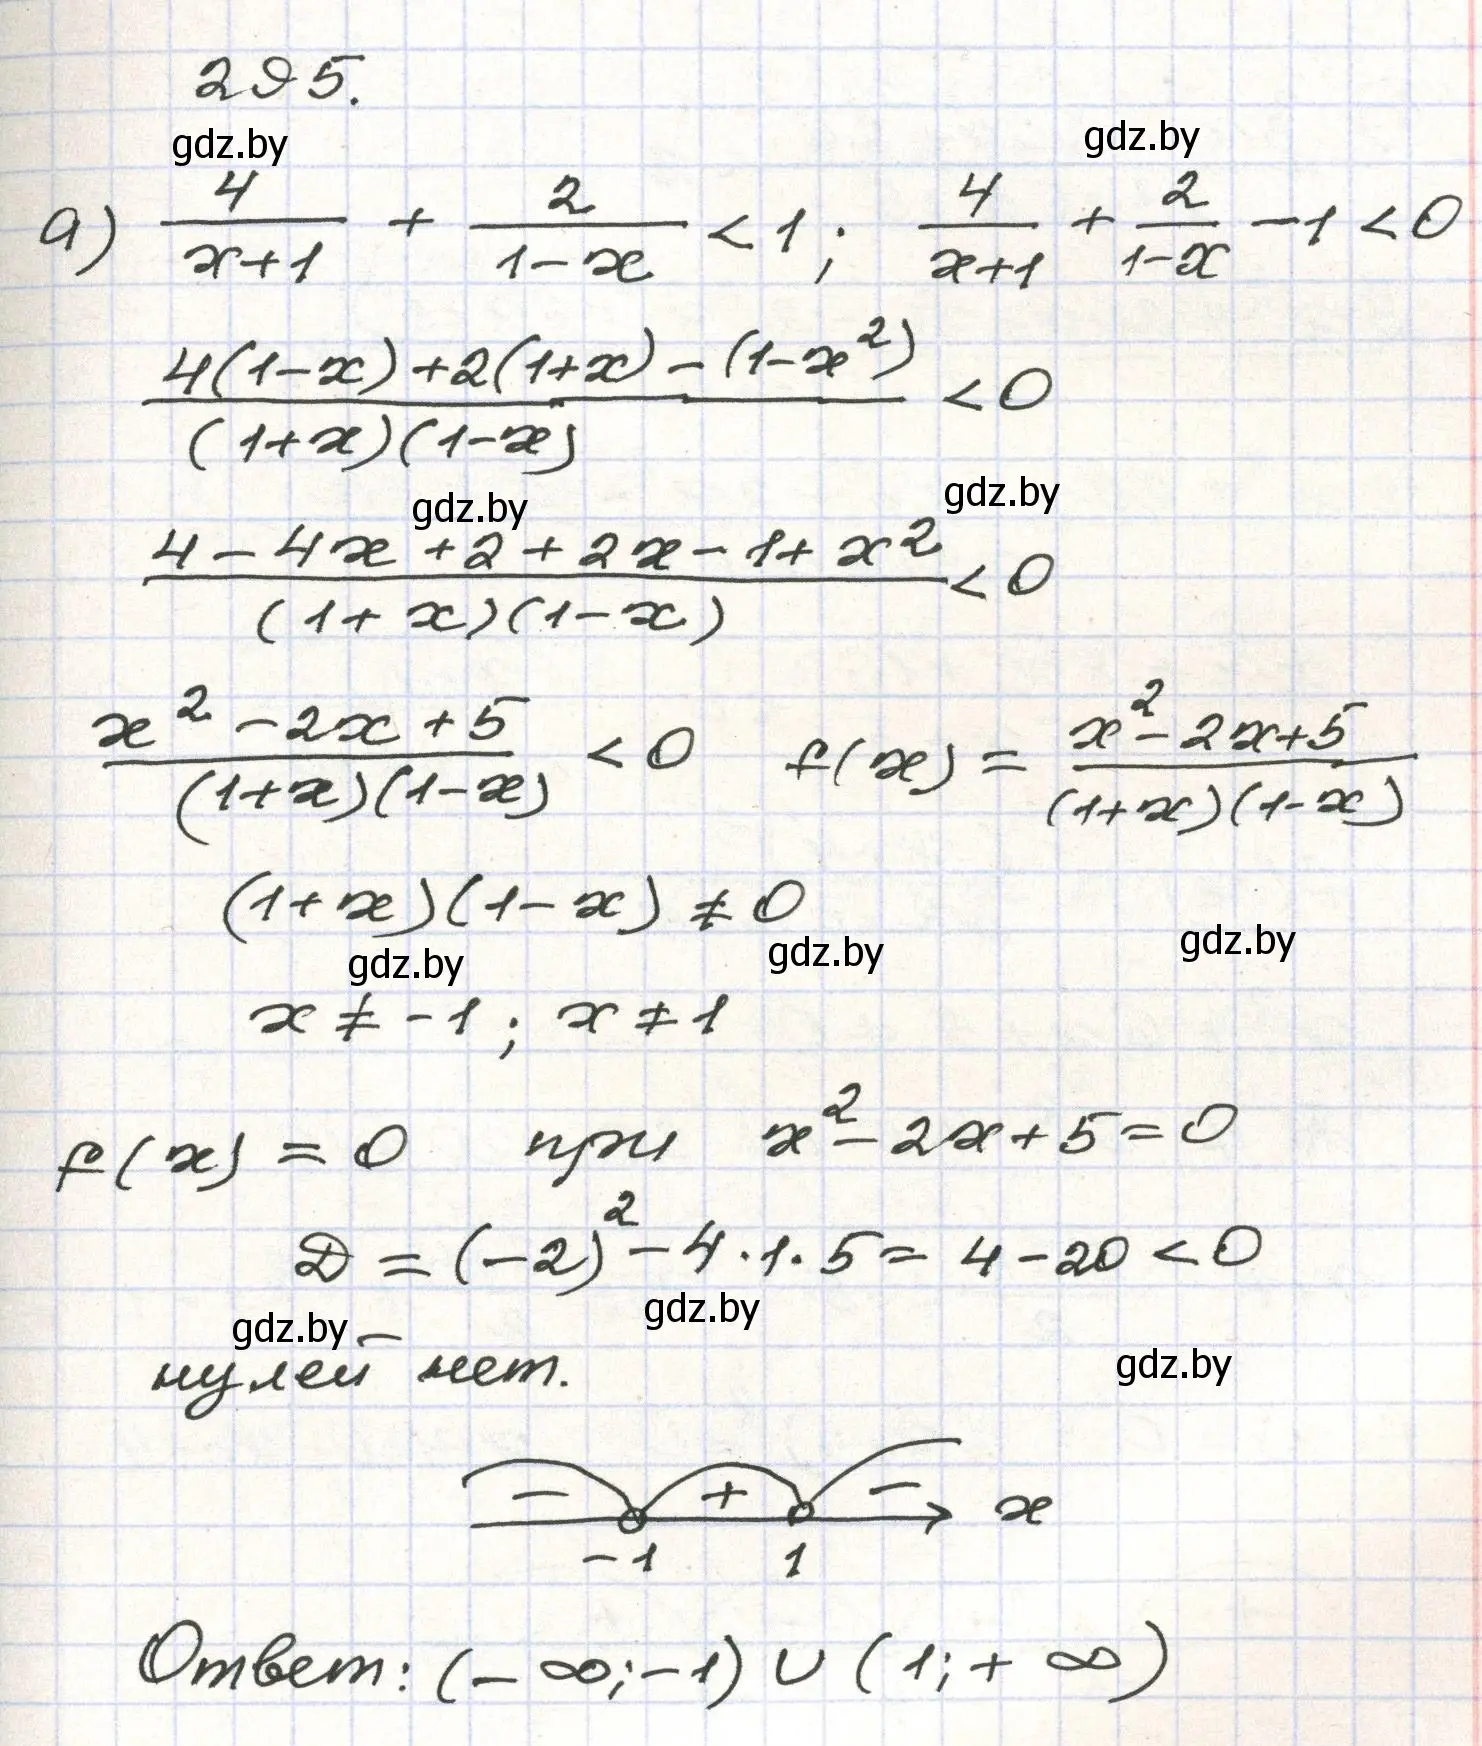 295.
gdz.by gdz.by
а) 4/(x+1) + 2/(1-x) < 1; 4/(x+1) + 2/(1-x) - 1 < 0
(4(1-x)+2(1+x)-(1-x²))/((1+x)(1-x)) < 0
gdz.by gdz.by
(4-4x+2+2x-1+x²)/((1+x)(1-x)) < 0
(x²-2x+5)/((1+x)(1-x)) < 0 f(x) = (x²-2x+5)/((1+x)(1-x))
(1+x)(1-x) ≠ 0
gdz.by gdz.by gdz.by
x ≠ -1; x ≠ 1
f(x) = 0 при x²-2x+5=0
Д = (-2)²-4·1·5 = 4-20 < 0
gdz.by gdz.by gdz.by
нулей нет.
- + - x
-1 1
Ответ: (-∞;-1) ∪ (1;+∞)